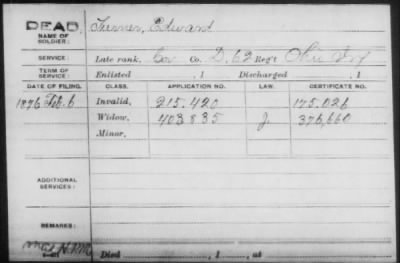 DEAD.
NAME OF SOLDIER: Edward
SERVICE: Late rank, Co. D, 62 Reg't Ohio Inf
TERM OF SERVICE: Enlisted , 1 Discharged , 1
DATE OF FILING. CLASS. APPLICATION NO. LAW. CERTIFICATE NO.
1876 Feb. 6 Invalid, 215.420 175.026
Widow, 403835 J. 376,660
Minor,
ADDITIONAL SERVICES:
REMARKS:
Died , 1 , at